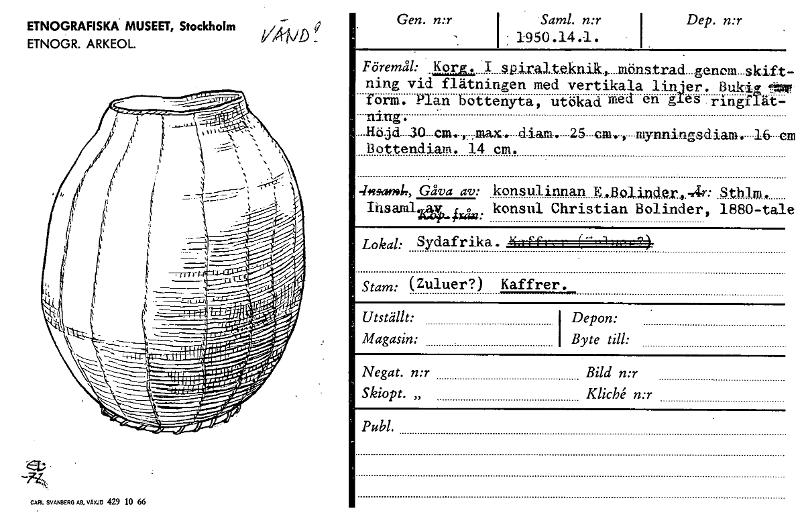 ETNOGRAFISKA MUSEET, Stockholm
ETNOGR. ARKEOL.
VÄND!
Gen. n:r Saml. n:r Dep. n:r
1950.14.1.
Föremål: Korg. I spiralteknik, mönstrad genom skift-
ning vid flätningen med vertikala linjer. Bukig
form. Plan bottenyta, utökad med en gles ringflät-
ning.
Höjd 30 cm., max. diam. 25 cm., mynningsdiam. 16 cm
Bottendiam. 14 cm.
Insaml., Gåva av: konsulinnan E.Bolinder, År: Sthlm.
Insaml av Köp från: konsul Christian Bolinder, 1880-tale
Lokal: Sydafrika. Kaffrer (Zuluer?)
Stam: (Zuluer?) Kaffrer.
Utställt: Depon:
Magasin: Byte till:
Negat. n:r Bild n:r
Skiopt. „ Kliché n:r
Publ.
-72
CARL SVANBERG AB, VÄXJÖ 429 10 66